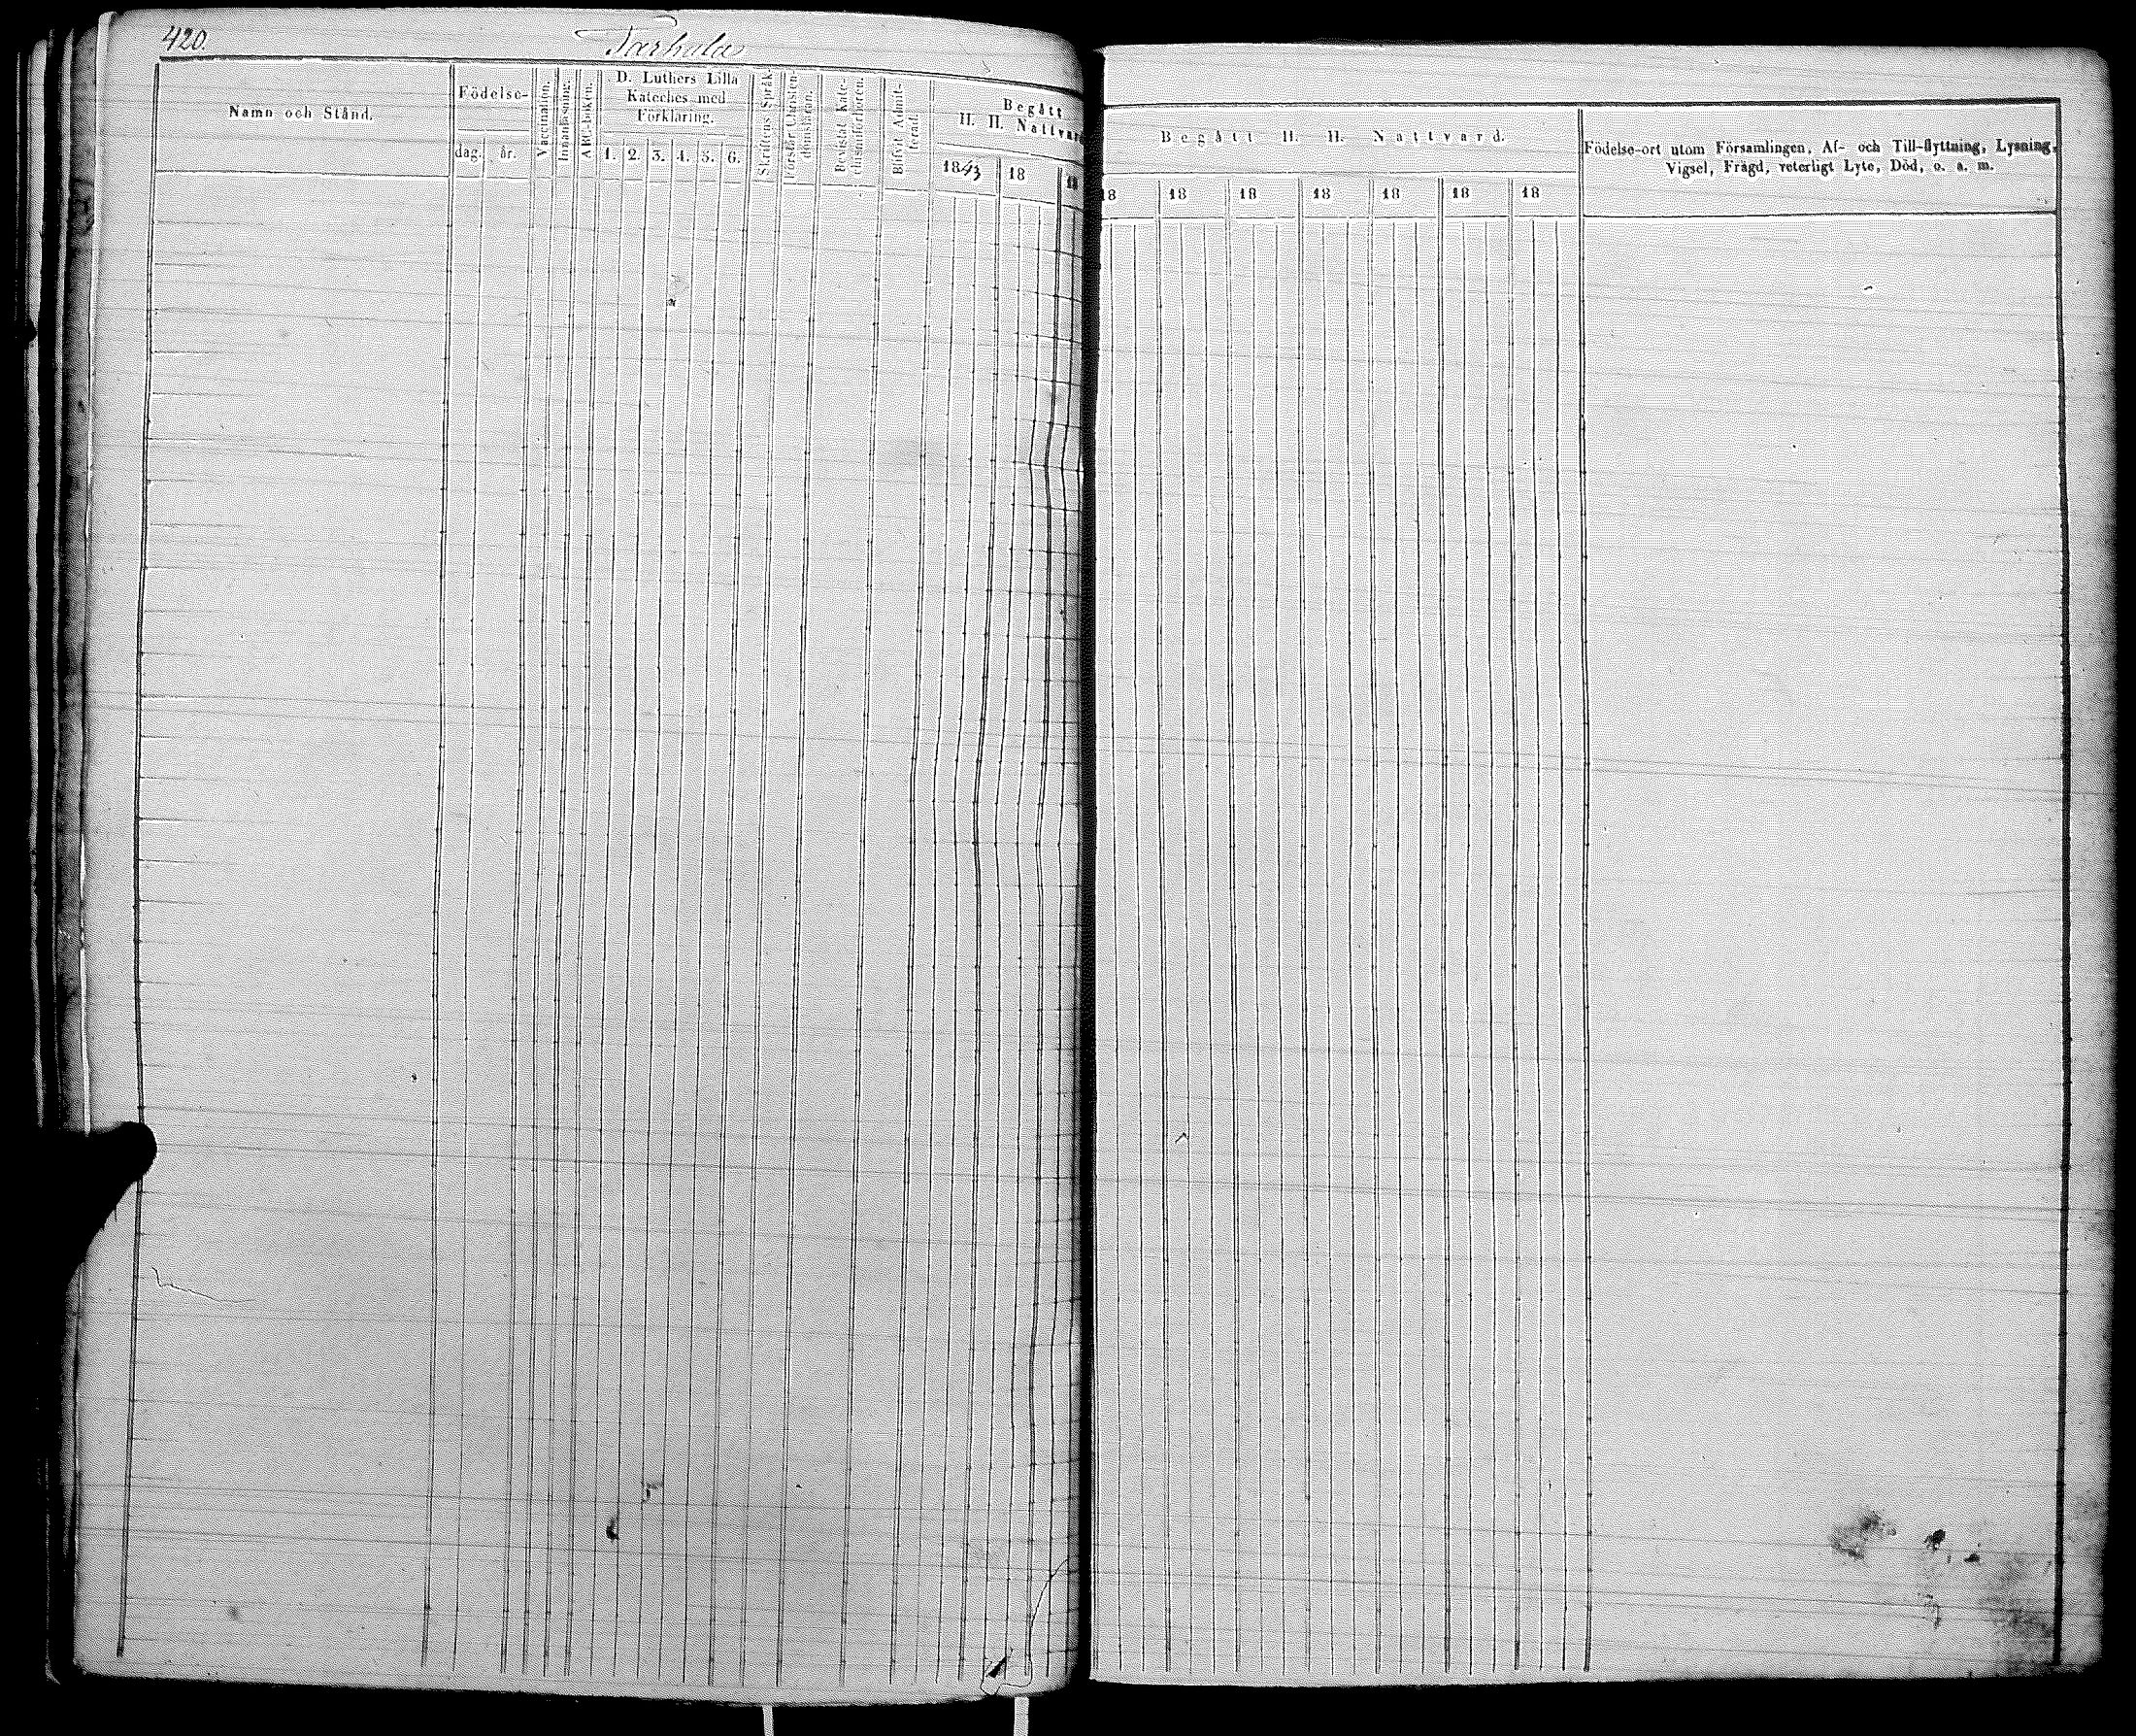 420.
Tarhula
Namn och Stånd.
Födelse-
dag.
år.
Vaccination.
Innanläsning.
ABC-boken.
D. Luthers Lilla
Kateches med
Förklaring.
1. 2. 3. 4. 5. 6.
Skriftens Språk.
Förstår Christen-
domsläran.
Bevistat Kate-
chismiförhören.
Blifvit Admit-
terad.
Begått
H. H. Nattvard
1843 18 18
Begått H. H. Nattvard.
18 18 18 18 18 18 18
Födelse-ort utom Församlingen, Af- och Till-flyttning, Lysning,
Vigsel, Frägd, veterligt Lyte, Död, o. a. m.